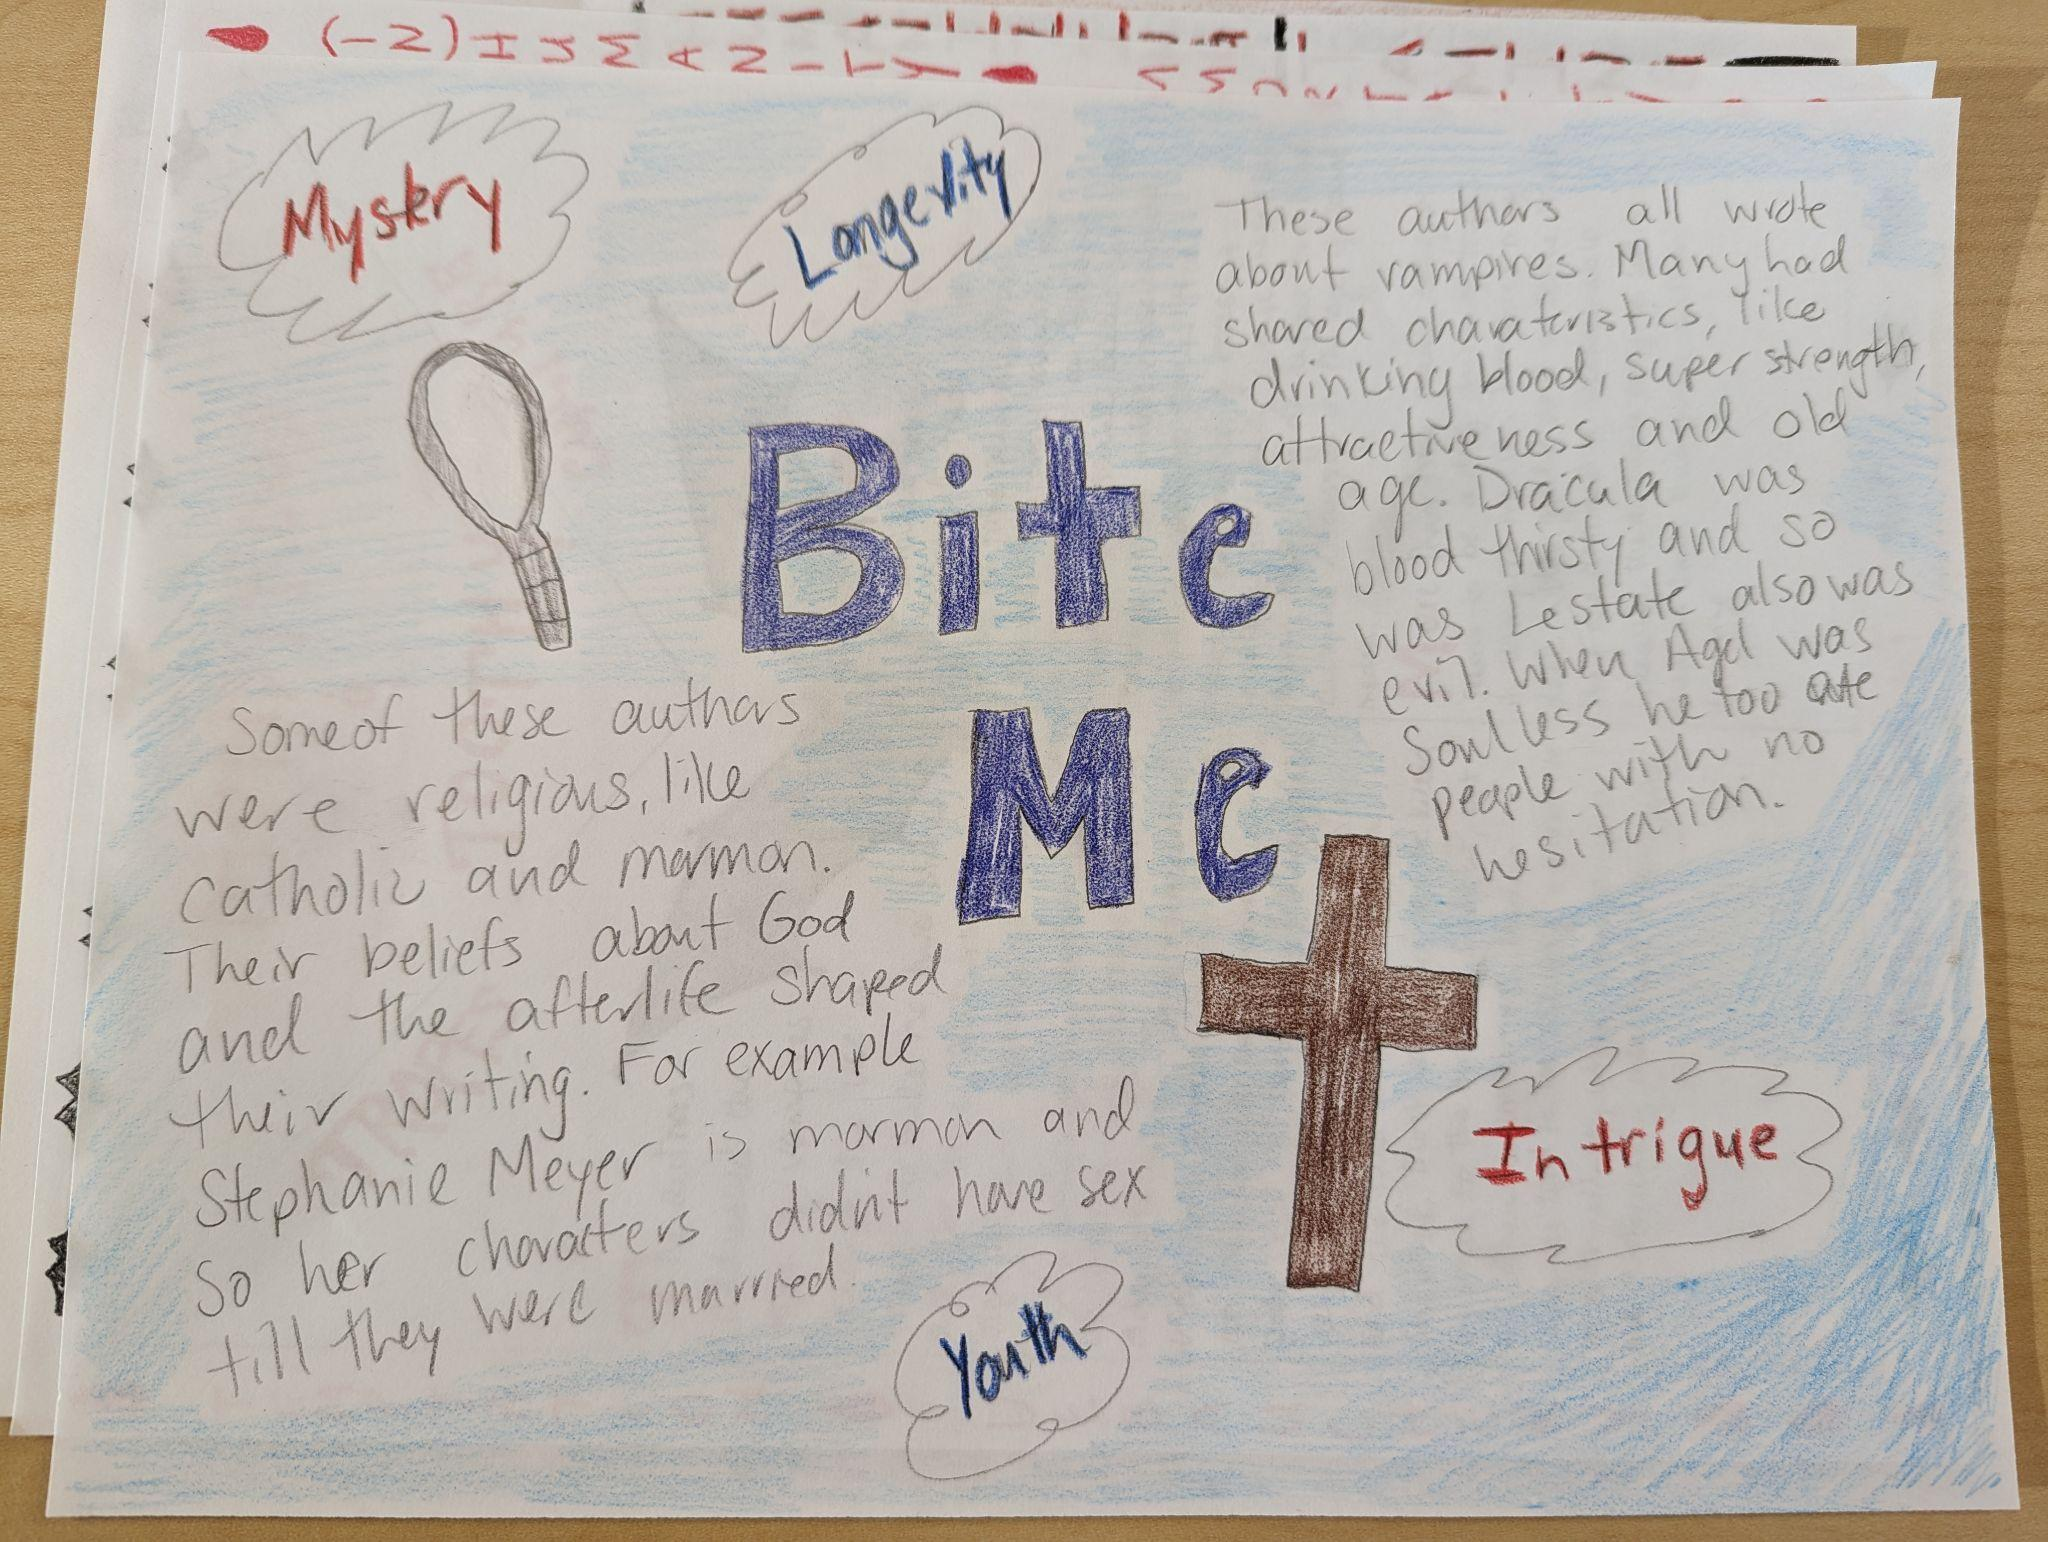 (-2) HUMANITY
Mystery
Longevity
These authors all wrote
about vampires. Many had
shared charateristics, like
drinking blood, super strength,
attractiveness and old
age. Dracula was
blood thirsty and so
was Lestate also was
evil. When Agel was
Soulless he too ate
people with no
hesitation.
Bite
Me
Some of these authors
were religious, like
Catholic and mormon.
Their beliefs about God
and the afterlife shaped
their writing. For example
Stephanie Meyer is mormon and
So her characters didn't have sex
till they were married.
Intrigue
Youth